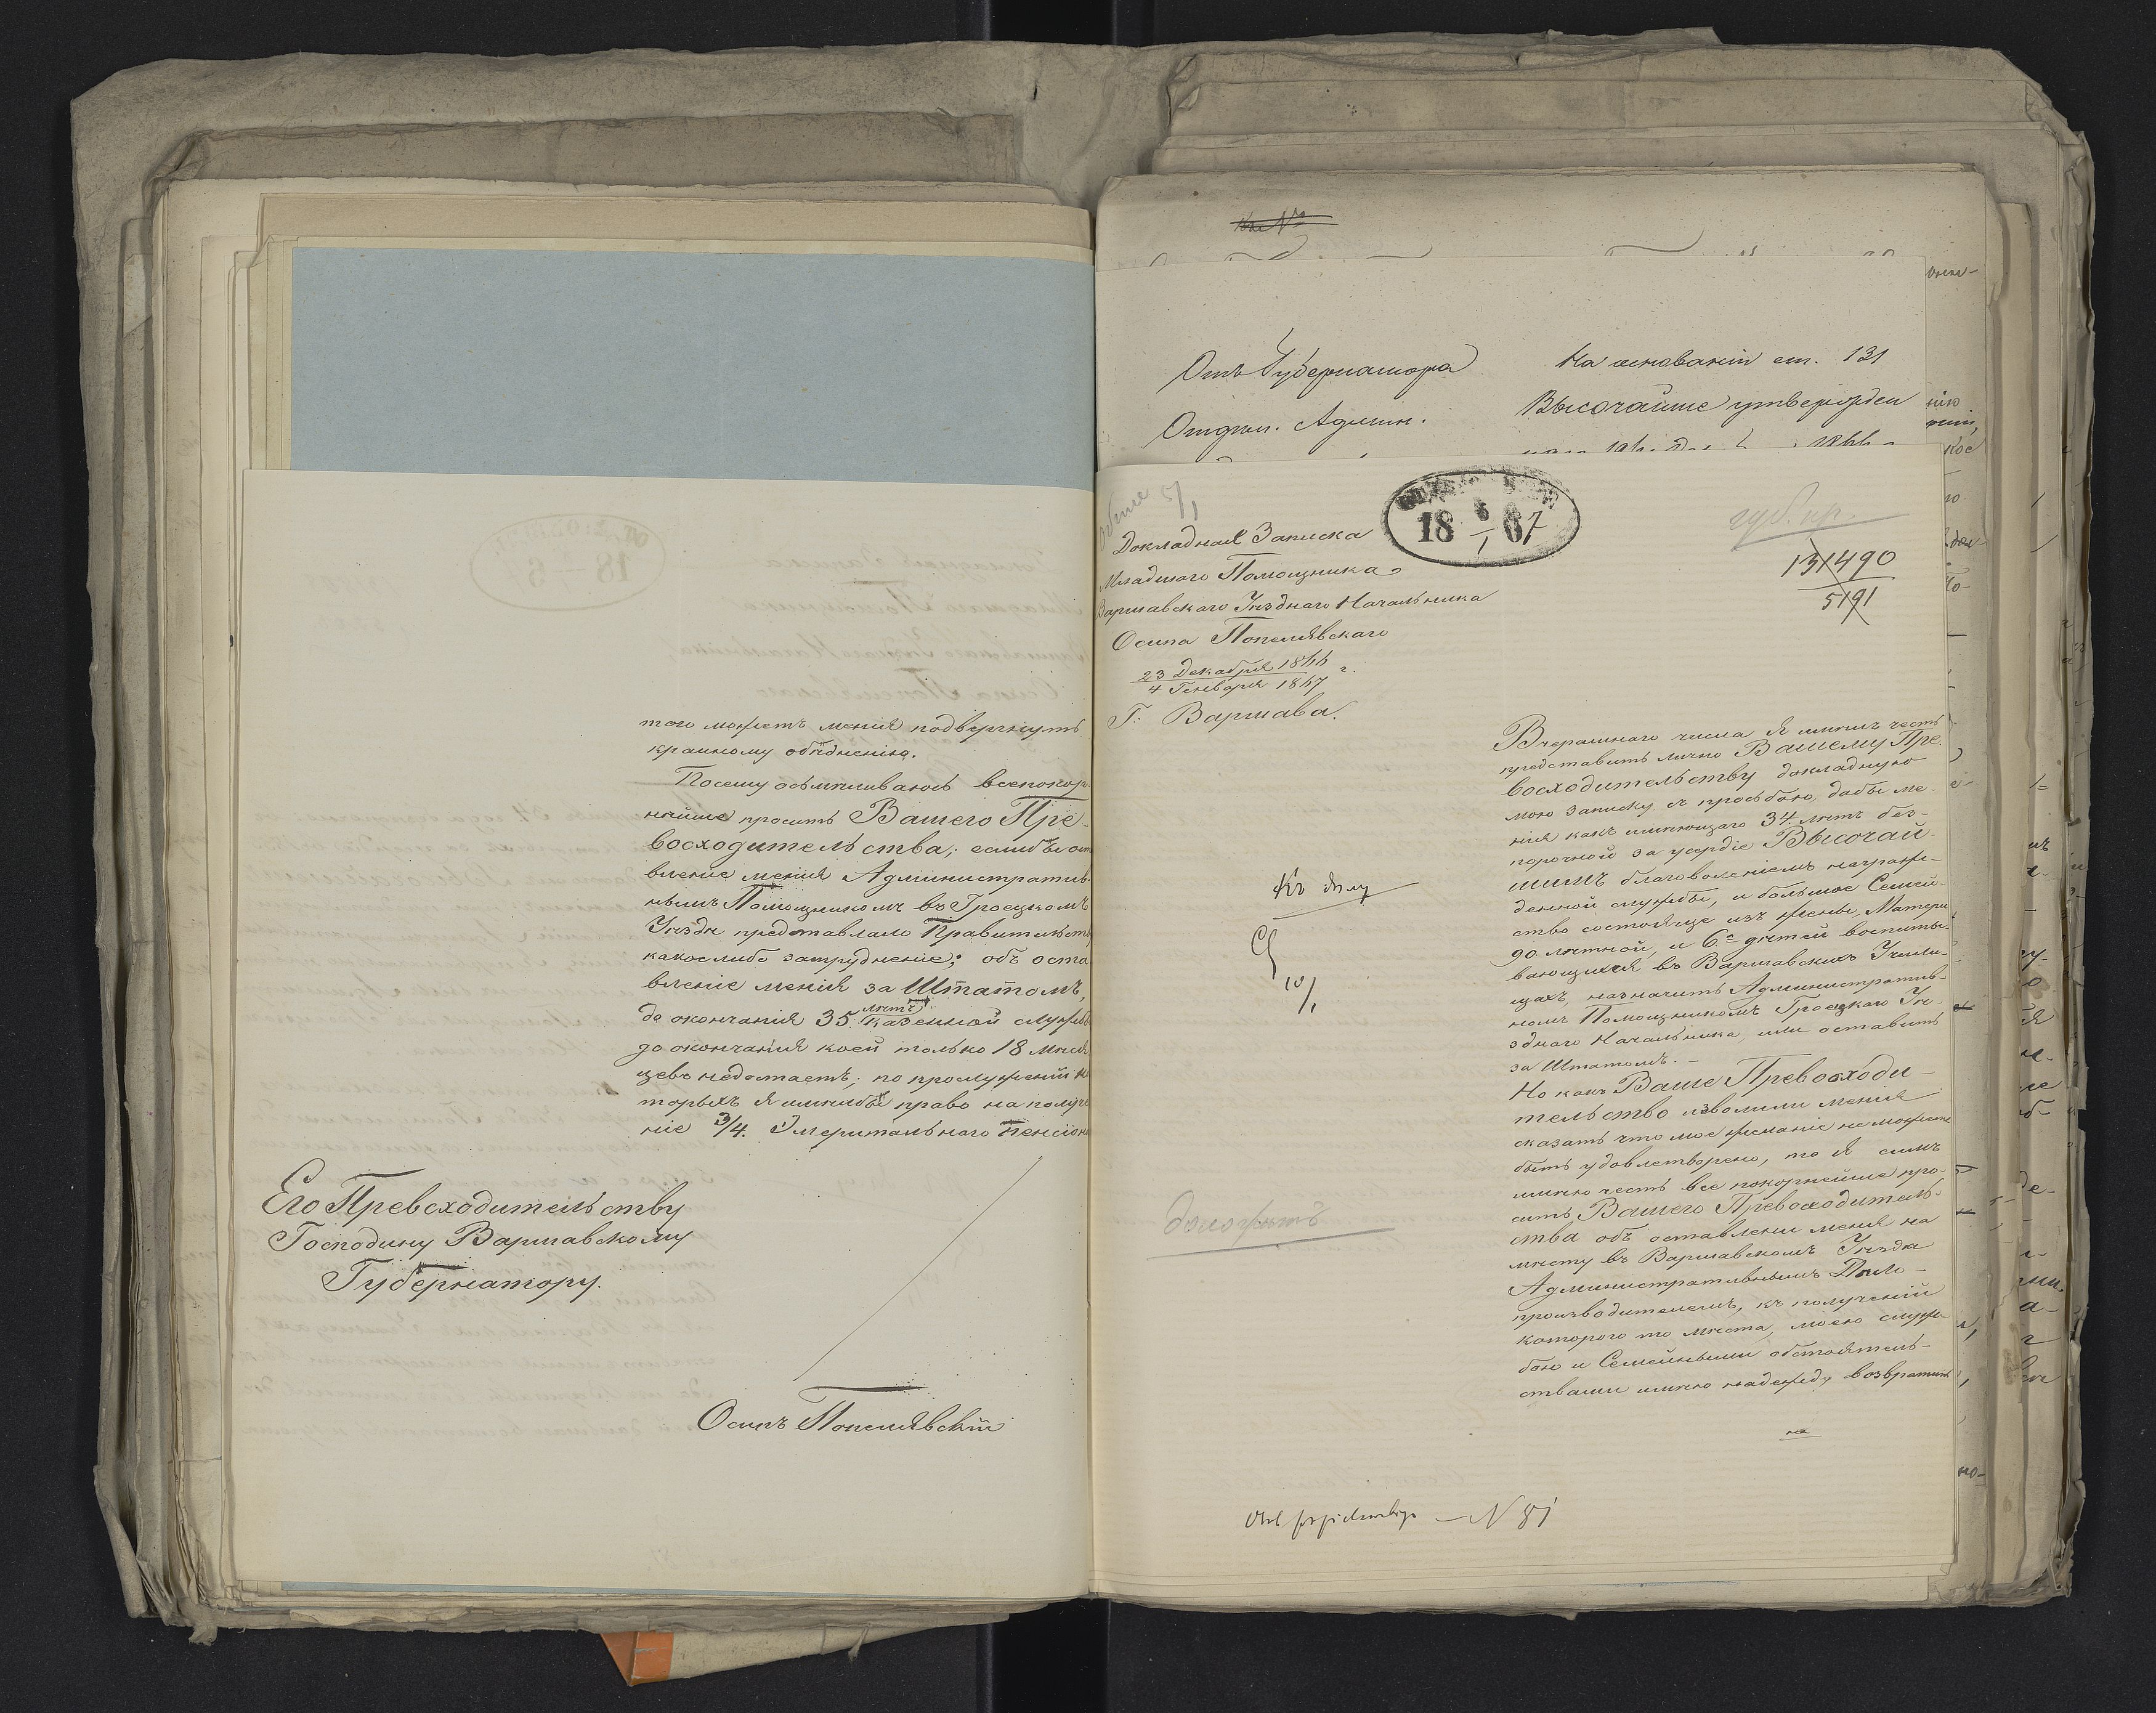 того можетъ меня подвергнуть
крайному обѣднению.
Посему осѣмливаюсь всепокор-
нѣйше просить Вашего Пре-
восходительства; еслибъ ост
вленіе меня Административ-
нымъ Помощникомъ въ Гроецкомъ
Уѣздѣ представлало Правительств
какоелибо затрудненіе; объ оста
вленіе меня за Штатомъ,
до окончанія 35. лѣтъ казенной службы
до окончанія коей только 18 мѣся
цевъ недостаетъ; по прослуженіи ко
торыхъ я имѣлъбы право на получе
ніе 3/4. Эмеритальнаго пенсіона
Его Превосходительству
Господину Варшавскому
Губернатору.
Осипъ Попелявскій
Отъ Губернатора
Отдѣл. Админ.
На основаніи ст. 131
Высочайше утвержден
18 6/1 67
Докладная Записка
Младшаго Помощника
Варшавскаго Уѣзднаго Начальника
Осипа Попелявскаго
23 Декабря 1866 г.
4 Генваря 1867
Г. Варшава.
губ. пр.
131490
5191
Вчерашнаго числа я имѣлъ честь
представить лично Вашему Пре-
восходительству докладную
мою записку съ просьбою, дабы ме-
ня какъ имѣющаго 34. лѣтъ без-
порочной за усердіе Высочай-
шимъ благоволеніемъ награж-
денной службы, и большое Семей-
ство состояще изъ жены, Матери
90 лѣтной, и 6.с дѣтей воспиты-
вающихся въ Варшавскихъ Учили-
щахъ, назначить Административ-
номъ Помощникомъ Гроецкаго Уѣ-
зднаго Начальника, или оставить
за Штатомъ. —
Но какъ Ваше Превосходи-
тельство изволили меня
сказать что мое желаніе не можетъ
быть удовлетворено, то я симъ
имѣю честь все покорнѣйше про-
сить Вашего Превосходитель-
ства объ оставлени меня на
мѣсту въ Варшавскомъ Уѣзда
Административнымъ Дѣло-
производителемъ, къ полученій
котораго то мѣста, моею служ-
бою и Семейными обстоятель-
ствами имѣю надежду, возвратить
Къ дѣлу
10/1
доложить
N 81